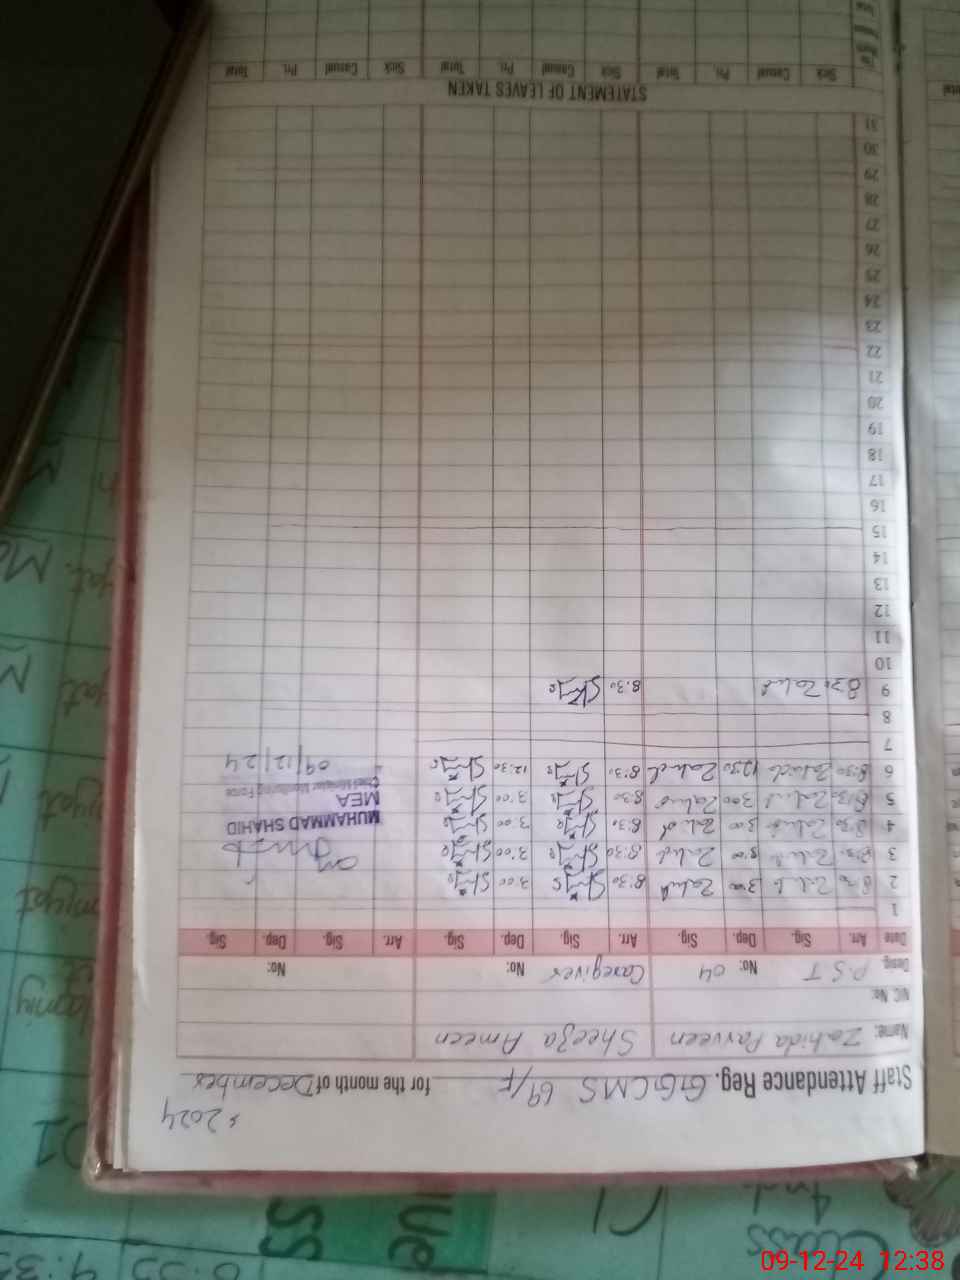 2024
Staff Attendance Reg. GGCMS 69/F for the month of December
Name: Zahida Parveen Sheeza Ameen
NIC No:
Desig. P.S.T No: 04 Caregiver No: No:
Date Arr. Sig. Dep. Sig. Arr. Sig. Dep. Sig. Arr. Sig. Dep. Sig.
1
2 8:30 Zahid 3:00 Zahid 8:30 3:00
3 8:30 Zahid 3:00 Zahid 8:30 3:00
4 8:30 Zahid 3:00 Zahid 8:30 3:00
MUHAMMAD SHAHID
5 8:30 Zahid 3:00 Zahid 8:30 3:00
MEA
Chief Minister Monitoring Force
6 8:30 Zahid 12:30 Zahid 8:30 12:30
09/12/24
7
8
9 8:30 Zahid 8:30
10
11
12
13
14
15
16
17
18
19
20
21
22
23
24
25
26
27
28
29
30
31
STATEMENT OF LEAVES TAKEN
Sick Casual Pri. Total Sick Casual Pri. Total Sick Casual Pri. Total
Total
Class
09-12-24 12:38